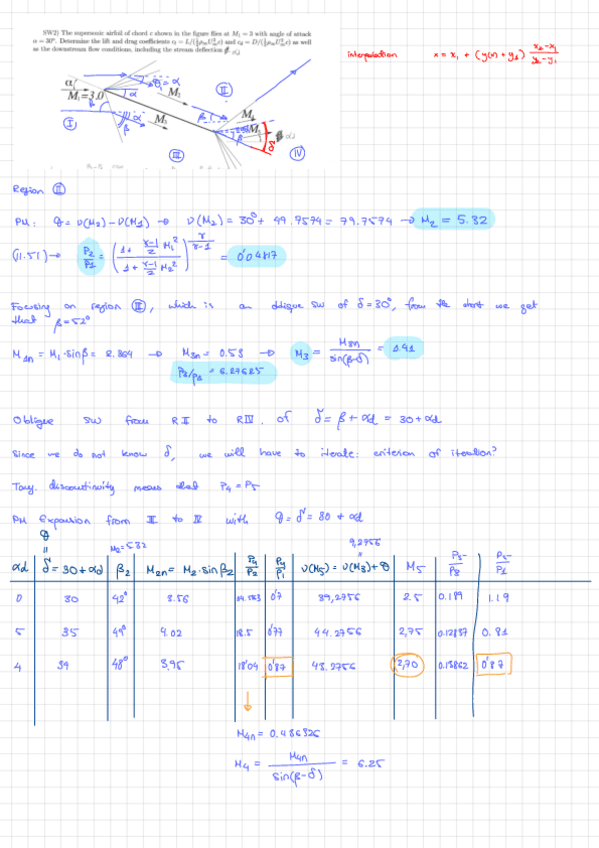 SW2) The supersonic airfoil of chord c shown in the figure flies at M₁ = 3 with angle of attack
α = 30°. Determine the lift and drag coefficients cₗ = L/(½ρ∞U²∞c) and c_d = D/(½ρ∞U²∞c) as well
as the downstream flow conditions, including the stream deflection
interpolation x = x₁ + (y(x) + y₁) (x₂-x₁)/(y₂-y₁)
α M₁=3.0 M₂ M₃ M₄
I II III IV
Region II
PM: θ = υ(M₂) - υ(M₁) → υ(M₂) = 30° + 49.7574 = 79.7574 → M₂ = 5.32
(11.51) → P₂/P₁ = ((1 + (γ-1)/2 M₁²)/(1 + (γ-1)/2 M₂²))^(γ/(γ-1)) = 0'04817
Focusing on region III, which is an oblique SW of δ = 30°, from the chart we get
that β = 52°
M₁n = M₁·sinβ = 2.364 → M₃n = 0.53 → M₃ = M₃n/sin(β-δ) = 1.41
P₃/P₁ = 6.27625
Oblique SW from R II to R IV. of δ = β + αd = 30 + αd
Since we do not know δ, we will have to iterate: criterion of iteration?
Tang. discontinuity means that P₄ = P₅
PM Expansion from III to IV with θ = δ = 30 + αd
θ = M₂=5.32 9,2756
αd δ = 30+αd β₂ M₂n = M₂·sinβ₂ P₄/P₂ P₄/P₁ υ(M₅) = υ(M₃)+θ M₅ P₅/P₃ P₅/P₁
0 30 42° 3.56 0'7 39,2756 2.5 0.189 1.19
5 35 49° 4.02 18.5 0'77 44.2756 2,75 0.12837 0.81
4 34 48° 3,95 18'04 0'87 43.2756 2,70 0.13862 0'87
M₄n = 0.486326
M₄ = M₄n/sin(β-δ) = 6.25